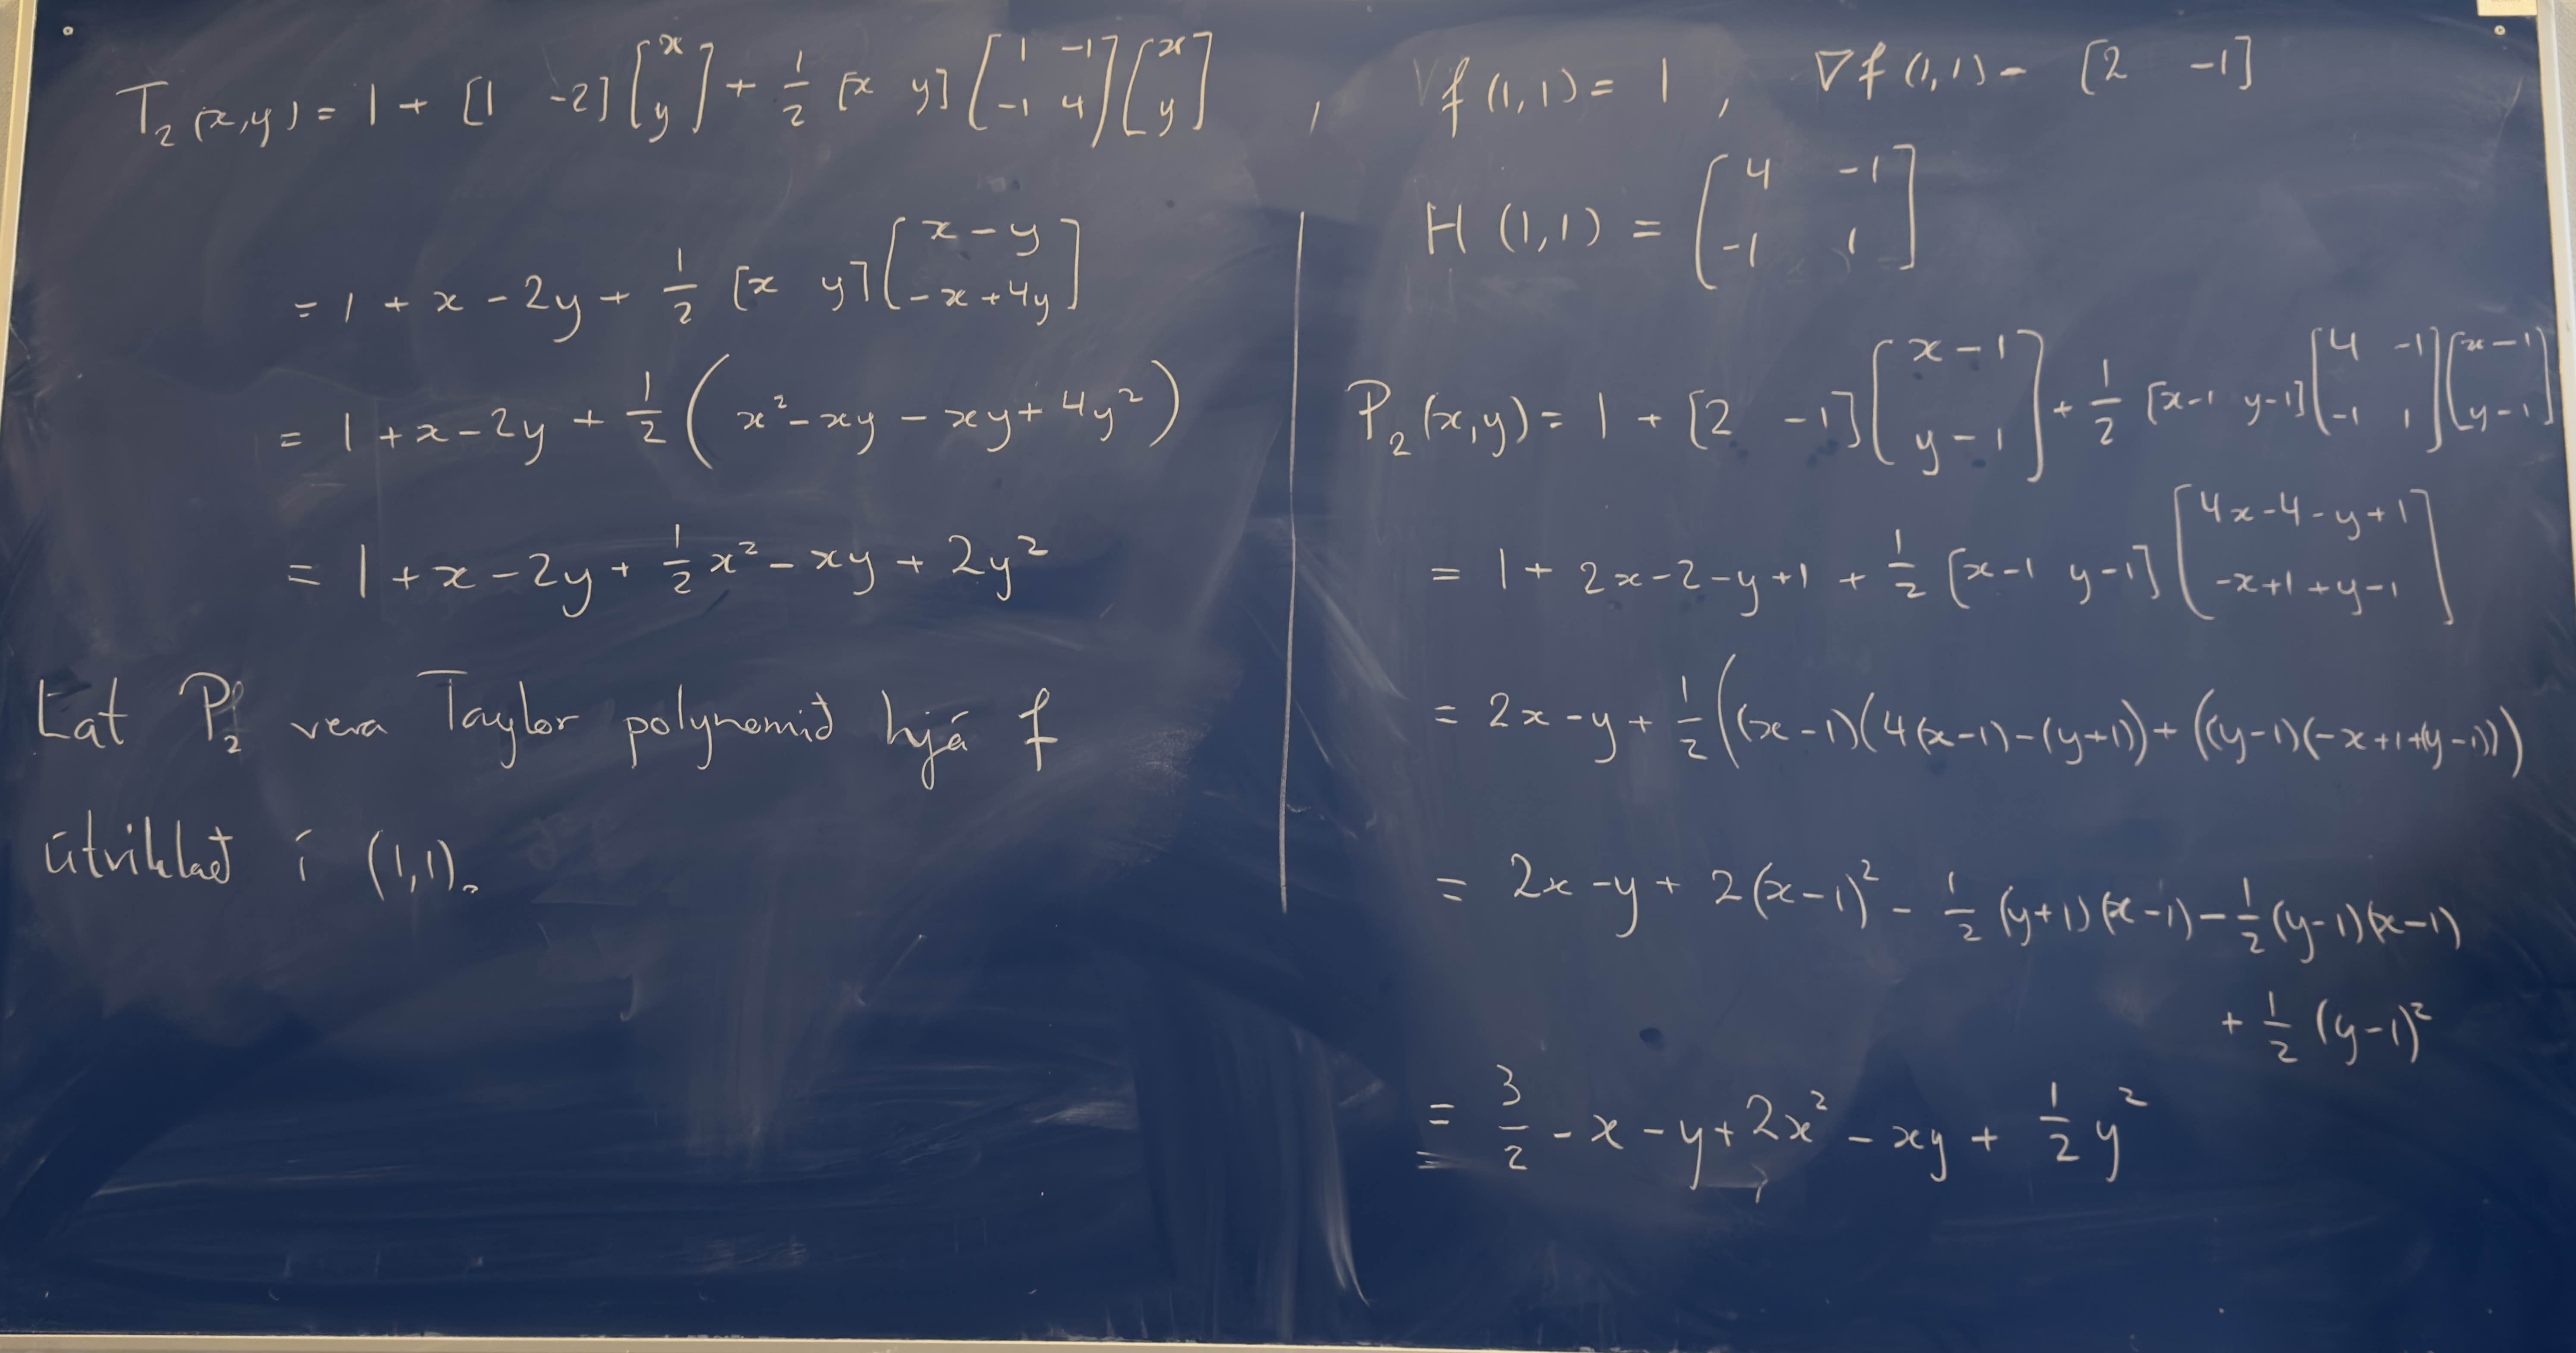 T₂(x,y) = 1 + [1 -2][x y] + 1/2 [x y][1 -1 -1 4][x y] ,
= 1 + x - 2y + 1/2 [x y][x - y -x + 4y]
= 1 + x - 2y + 1/2 (x² - xy - xy + 4y²)
= 1 + x - 2y + 1/2 x² - xy + 2y²
Lat P₂ vera Taylor polynomið hjá f
útviklað í (1,1).
f(1,1) = 1 , ∇f(1,1) - [2 -1]
H(1,1) = [4 -1 -1 1]
P₂(x,y) = 1 + [2 -1][x-1 y-1] + 1/2 [x-1 y-1][4 -1 -1 1][x-1 y-1]
= 1 + 2x - 2 - y + 1 + 1/2 [x-1 y-1][4x-4-y+1 -x+1+y-1]
= 2x - y + 1/2 ((x-1)(4(x-1)-(y+1)) + ((y-1)(-x+1+(y-1)))
= 2x - y + 2(x-1)² - 1/2 (y+1)(x-1) - 1/2 (y-1)(x-1)
+ 1/2 (y-1)²
= 3/2 - x - y + 2x² - xy + 1/2 y²